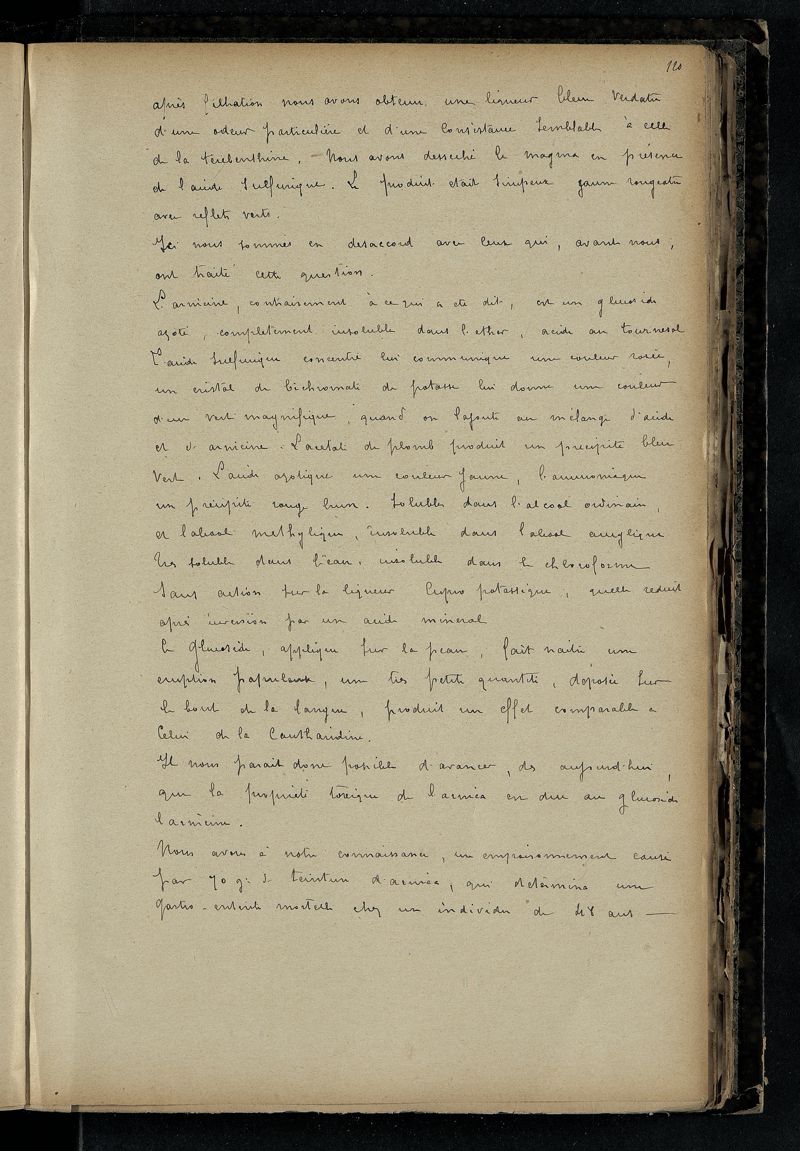 120
après filtration nous avons obtenu une liqueur bleu verdatre
d'une odeur particulière et d'une consistance semblable à celle
de la terebenthine. Nous avons desseché le magma en présence
de l'acide sulfurique. Le produit etait sirupeux jaune rougeatre
avec reflets verts.
Ici nous sommes en desaccord avec ceux qui, avant nous,
ont traité cette question.
L'arnicine, contrairement à ce qui a ete dit, est un glucoside
azoté, completement insoluble dans l'ether, acide au tournesol
L'acide sulfurique concentré lui communique une couleur rosée,
un cristal de bichromate de potasse lui donne une couleur
d'un vert magnifique, quand on l'ajoute au mélange d'acide
et d'arnicine. L'acetate de plomb produit un precipité bleu
vert. L'acide azotique une couleur jaune, l'ammoniaque
un précipité rouge brun. Soluble dans l'alcool ordinaire,
et l'alcool methylique, insoluble dans l'alcool amylique
tres soluble dans l'eau, insoluble dans le chloroforme
Sans action sur la liqueur cupro potassique, quelle reduit
après inversion par un acide mineral
Ce glucoside, appliqué sur la peau, fait naitre une
eruption papuleuse, une tres petite quantité, déposée sur
le bout de la langue, produit un effet comparable a
celui de la Cantharidine.
Il nous parait donc possible d'avancer, des aujourd'hui,
que la proprieté toxique de l'arnica en due au glucoside
l'arnicine.
Nous avons à notre connaissance, un empoisonnement causé
par 70 g. de teinture d'arnica, qui détermina une
gastro-enterite mortelle chez un individu de 48 ans —